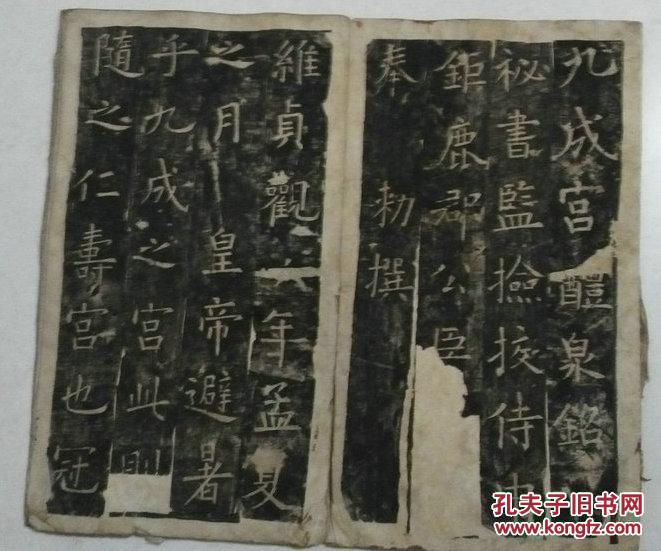 九成宮醴泉銘
秘書監撿挍侍中
鉅鹿郡公臣
奉 勑撰
維貞觀六年孟夏
之月 皇帝避暑
乎九成之宮此則
隨之仁壽宮也冠
孔夫子旧书网
www.kongfz.com